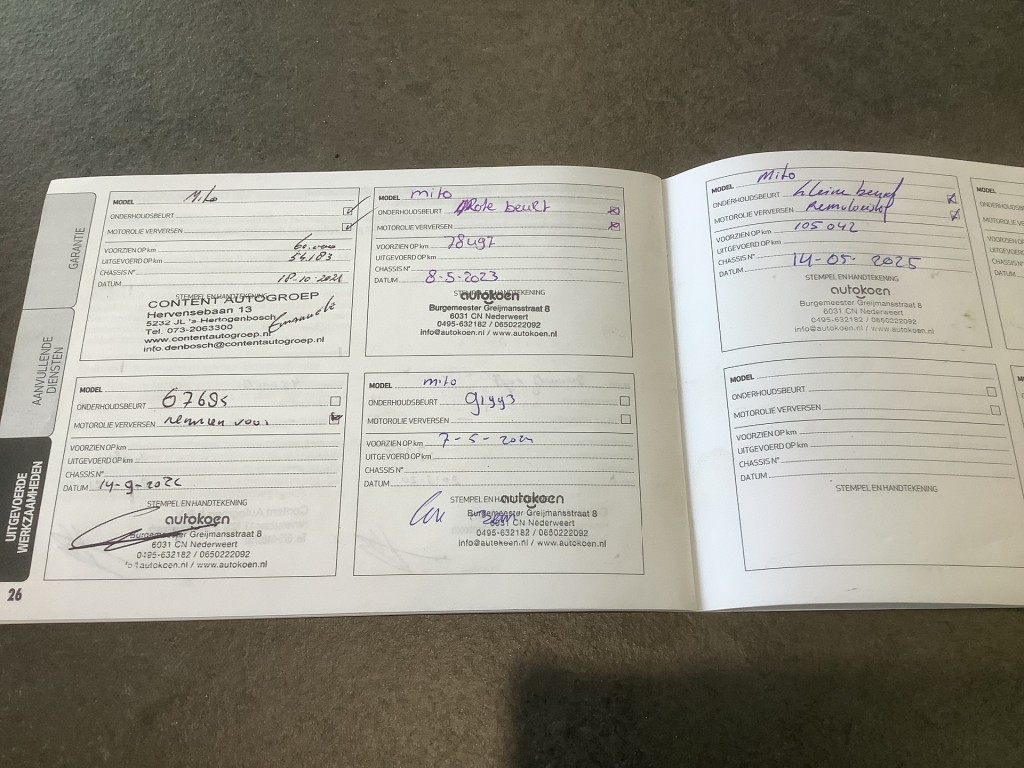 GARANTIE
AANVULLENDE
DIENSTEN
UITGEVOERDE
WERKZAAMHEDEN
26
MODEL Mito
ONDERHOUDSBEURT
MOTOROLIE VERVERSEN
VOORZIEN OP km 60.000
UITGEVOERD OP km 54183
CHASSIS N°
DATUM 18-10-2021
STEMPEL EN HANDTEKENING
CONTENT AUTOGROEP
Hervensebaan 13
5232 JL 's Hertogenbosch
Tel. 073-2063300
www.contentautogroep.nl
info.denbosch@contentautogroep.nl
MODEL
ONDERHOUDSBEURT 67685
MOTOROLIE VERVERSEN remmen voor
VOORZIEN OP km
UITGEVOERD OP km
CHASSIS N°
DATUM 14-9-202
STEMPEL EN HANDTEKENING
autokoen
Burgemeester Greijmansstraat 8
6031 CN Nederweert
0495-632182 / 0650222092
info@autokoen.nl / www.autokoen.nl
MODEL mito
ONDERHOUDSBEURT grote beurt
MOTOROLIE VERVERSEN
VOORZIEN OP km 78497
UITGEVOERD OP km
CHASSIS N°
DATUM 8-5-2023
STEMPEL EN HANDTEKENING
autokoen
Burgemeester Greijmansstraat 8
6031 CN Nederweert
0495-632182 / 0650222092
info@autokoen.nl / www.autokoen.nl
MODEL mito
ONDERHOUDSBEURT 91993
MOTOROLIE VERVERSEN
VOORZIEN OP km 7-5-2024
UITGEVOERD OP km
CHASSIS N°
DATUM
STEMPEL EN HANDTEKENING
autokoen
Burgemeester Greijmansstraat 8
6031 CN Nederweert
0495-632182 / 0650222092
info@autokoen.nl / www.autokoen.nl
MODEL Mito
ONDERHOUDSBEURT kleine beurt
MOTOROLIE VERVERSEN Remvloeistof
VOORZIEN OP km 105042
UITGEVOERD OP km
CHASSIS N°
DATUM 14-05-2025
STEMPEL EN HANDTEKENING
autokoen
Burgemeester Greijmansstraat 8
6031 CN Nederweert
0495-632182 / 0650222092
info@autokoen.nl / www.autokoen.nl
MODEL
ONDERHOUDSBEURT
MOTOROLIE VERVERSEN
VOORZIEN OP km
UITGEVOERD OP km
CHASSIS N°
DATUM
STEMPEL EN HANDTEKENING